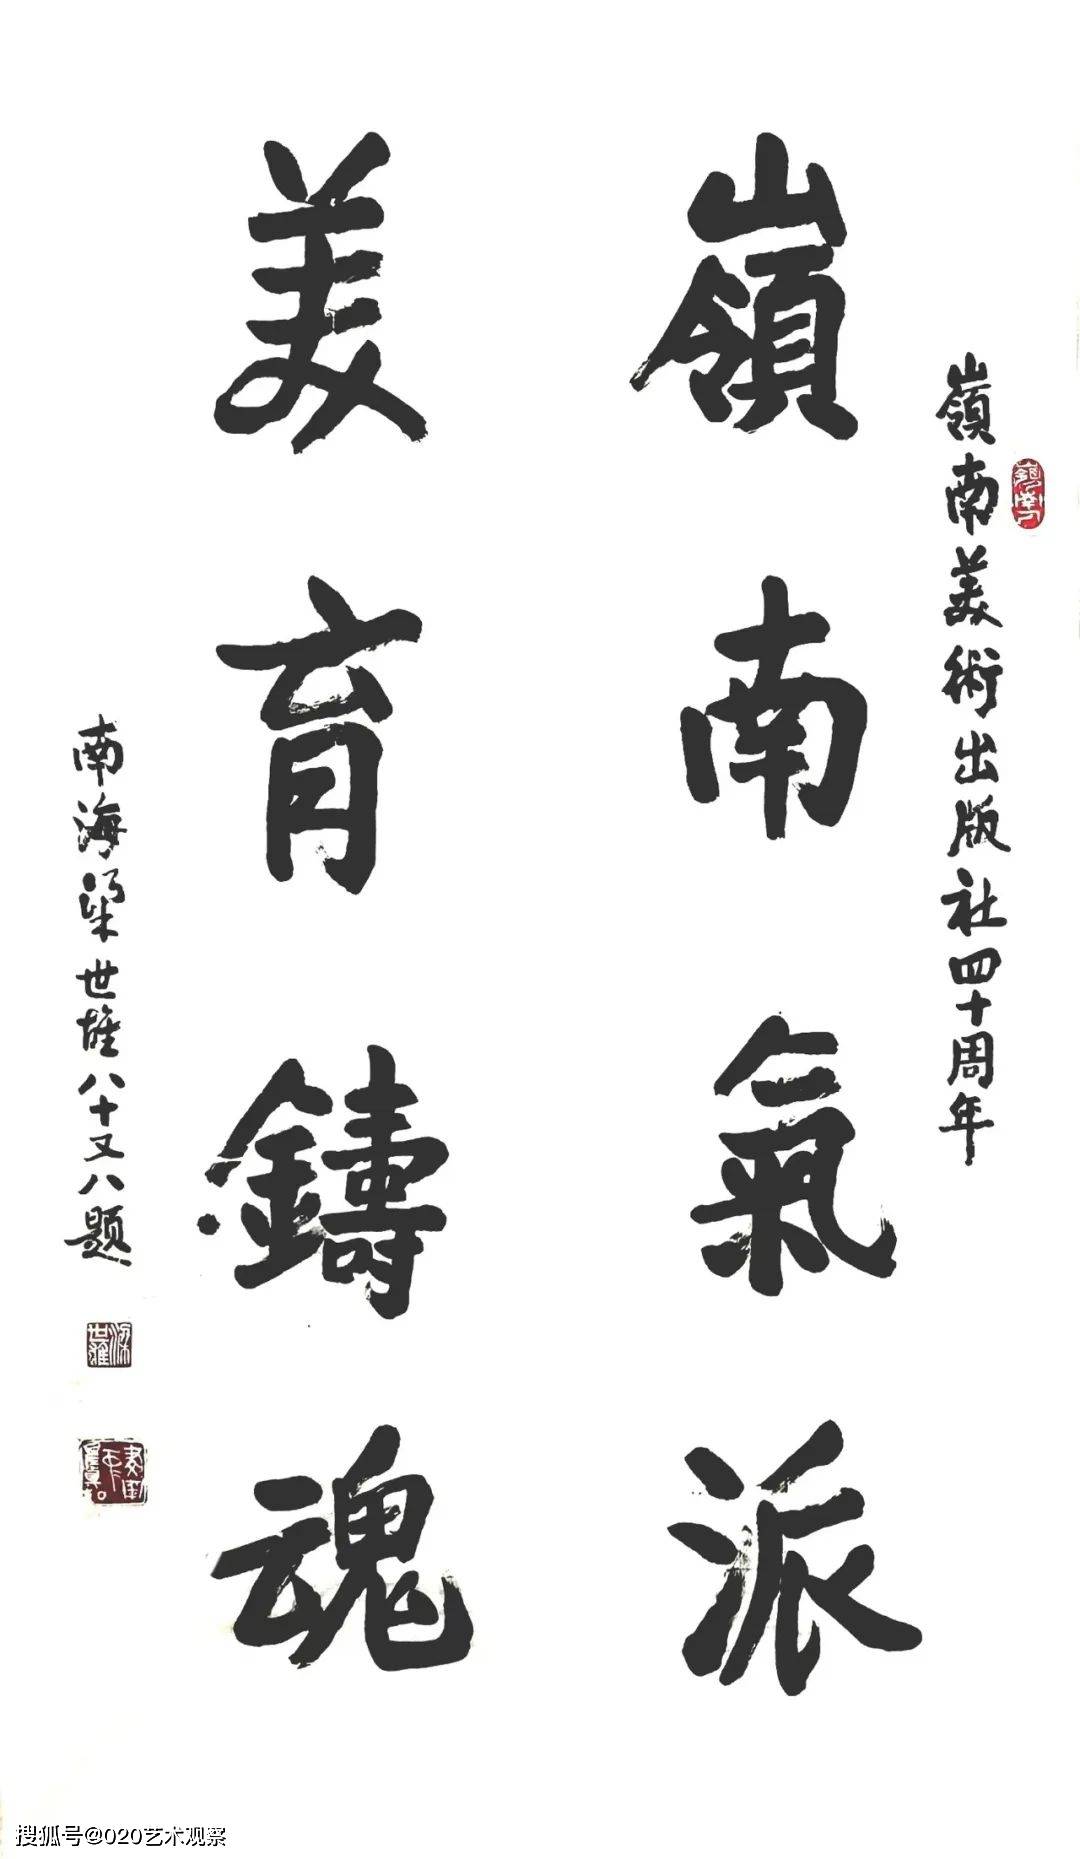 嶺南美術出版社四十周年
嶺南氣派
美育鑄魂
南海梁世雄八十又八题
嶺南人
梁世雄
搜狐号@020艺术观察